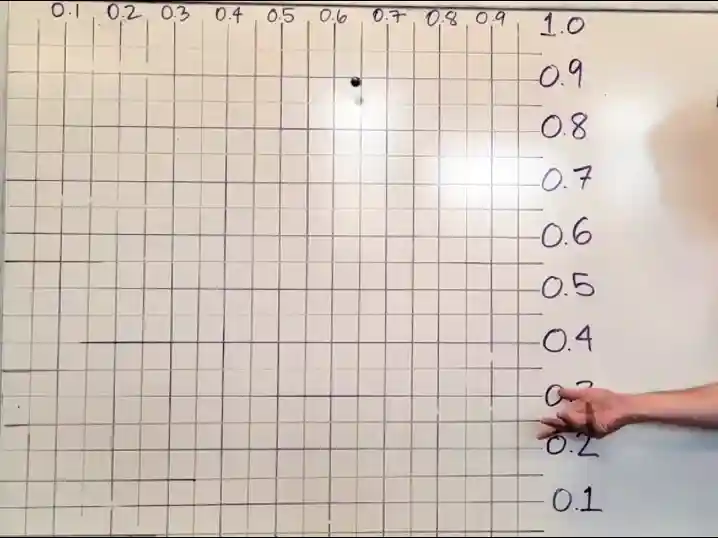 0.1 0.2 0.3 0.4 0.5 0.6 0.7 0.8 0.9
1.0
0.9
0.8
0.7
0.6
0.5
0.4
0.2
0.1